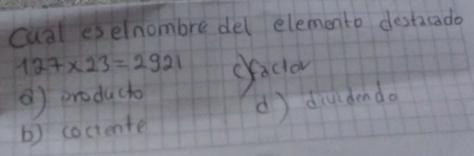 Cual es el nombre del elemento destacado
127 x 23 = 2921
a) producto
b) cociente
c) factor
d) dividendo